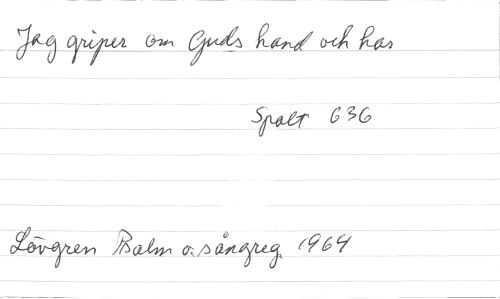 Jag griper om Guds hand och har
Spalt 636
Lövgren Psalm o. sångreg. 1964